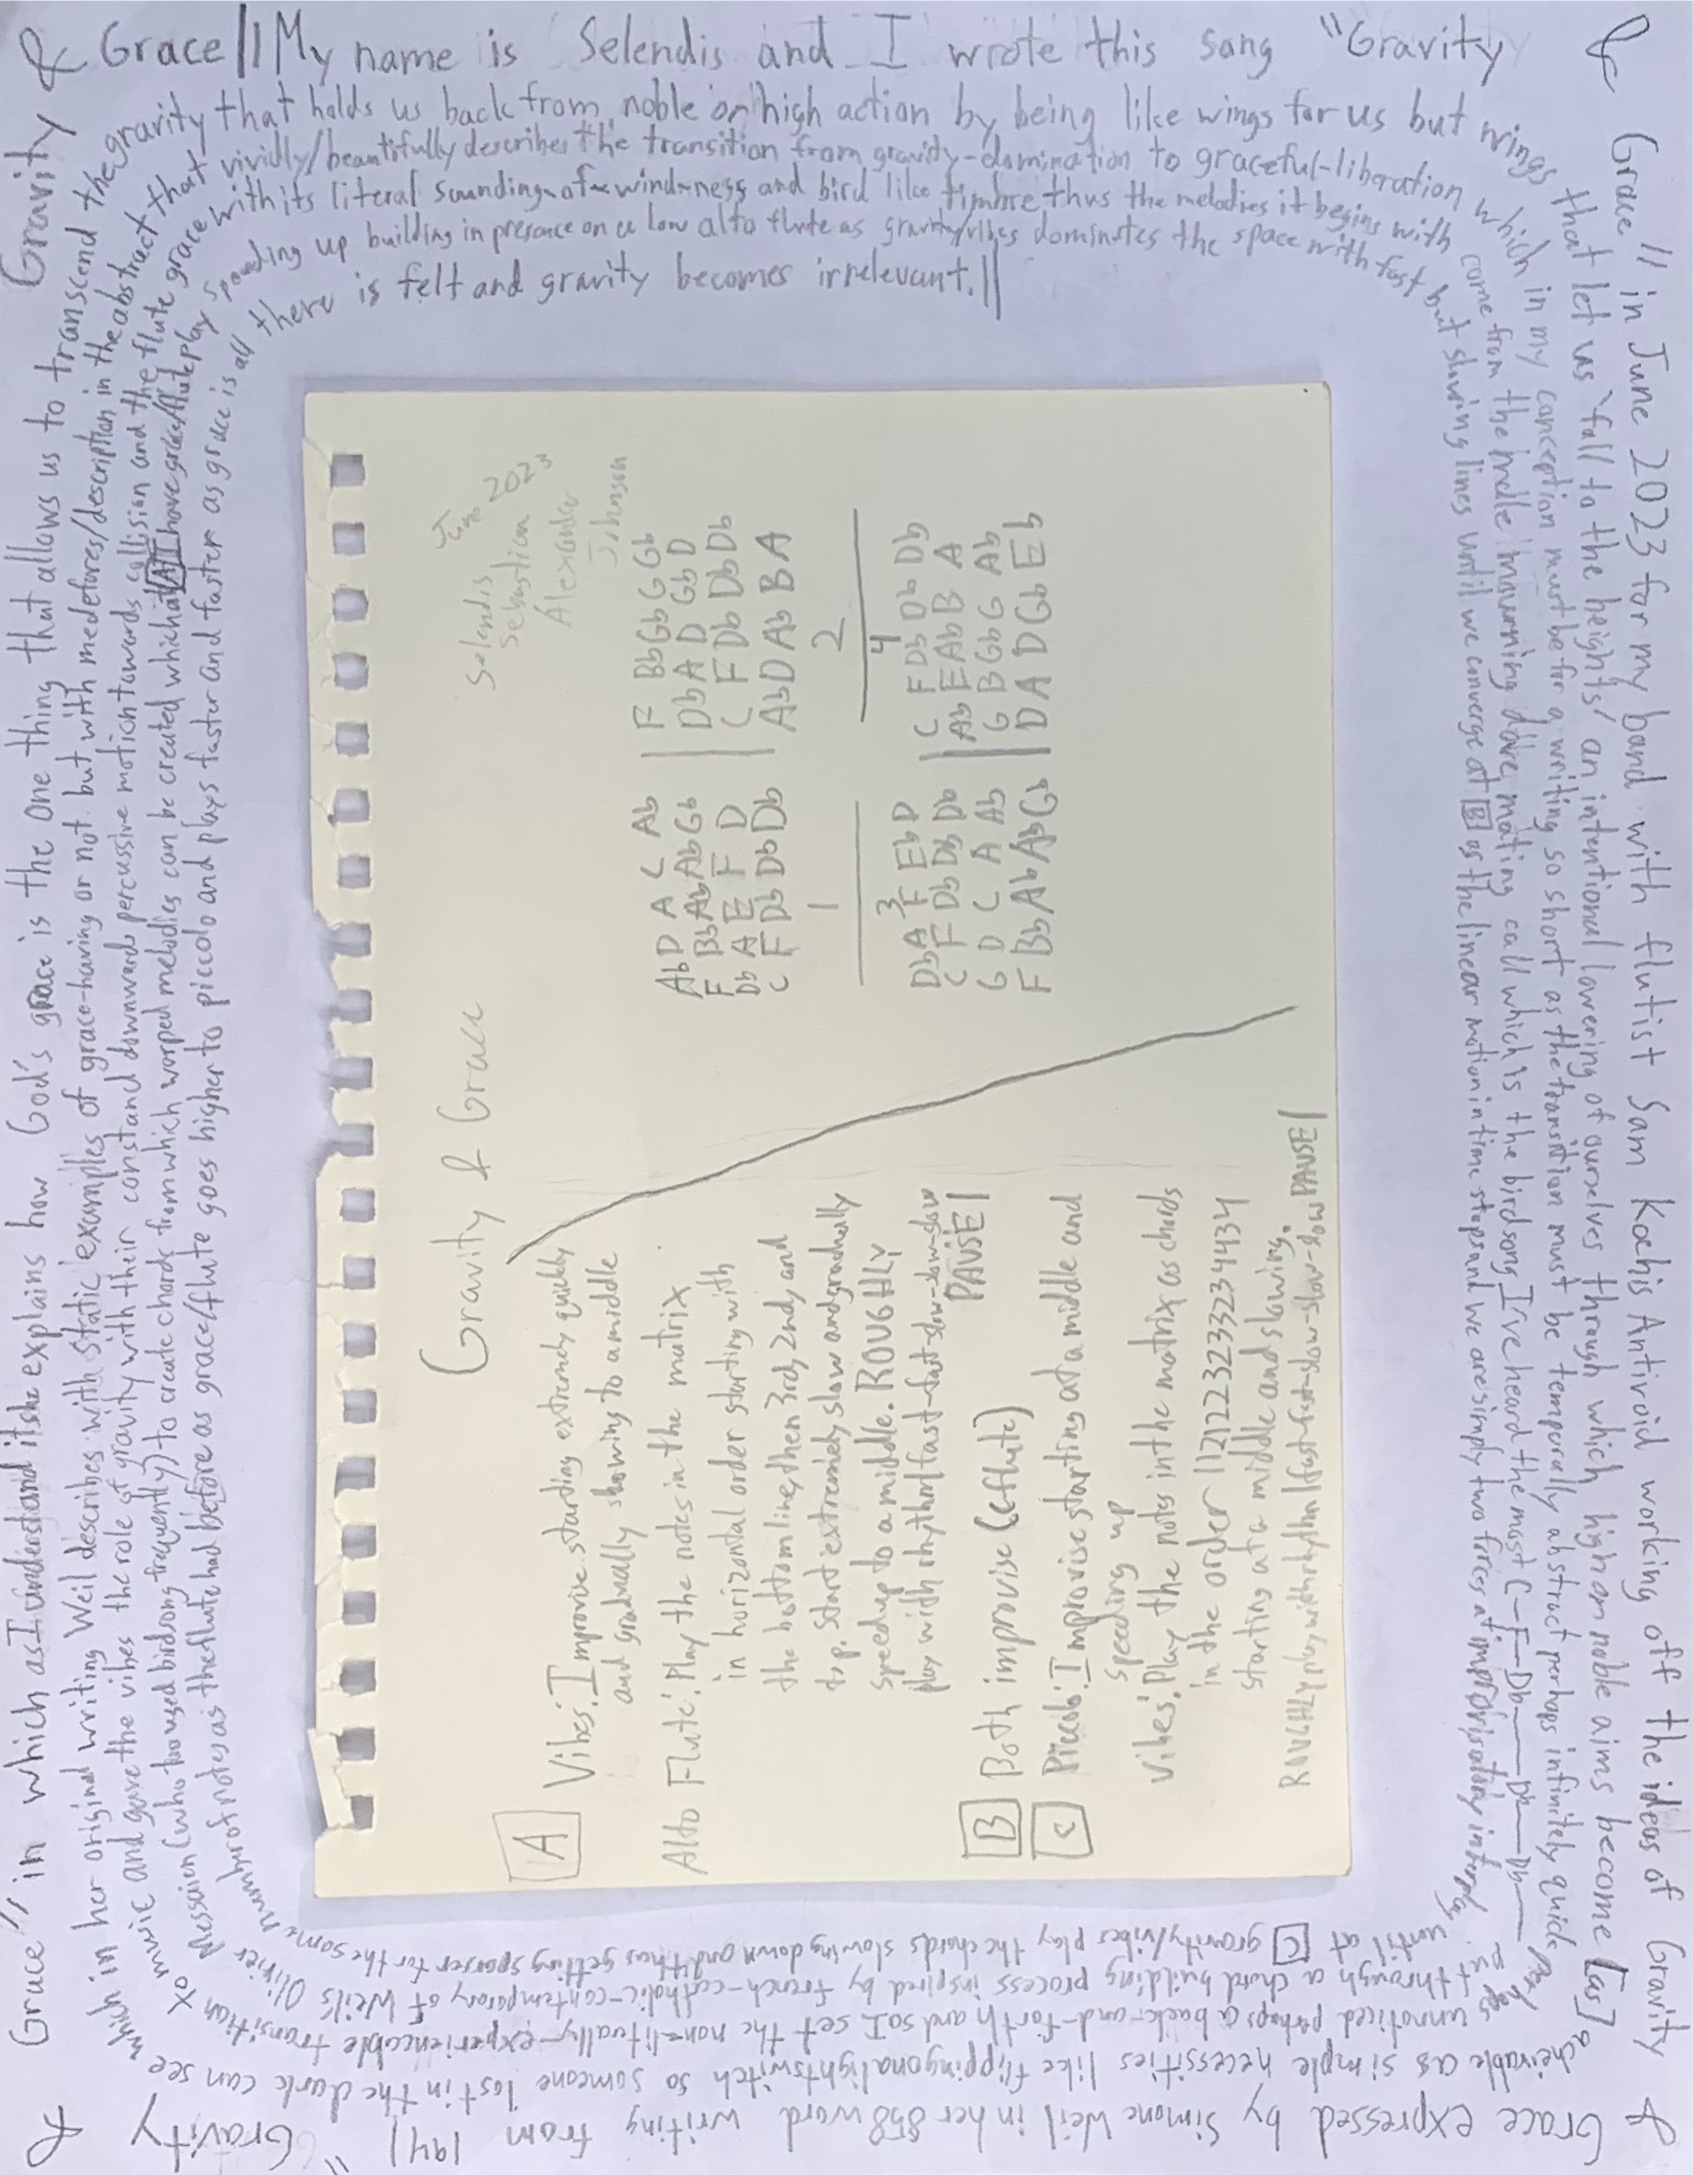 Gravity & Grace||My name is Selendis and I wrote this song "Gravity &
Grace" in June 2023 for my band with flutist Sam Kochis Antivoid working off the ideas of Gravity
& Grace expressed by Simone Weil in her 858 word writing from 1941 "Gravity &
Grace" in which as I understand it she explains how God's grace is the one thing that allows us to transcend
the gravity that holds us back from noble or high action by being like wings for us but wings
that let us "fall to the heights", an intentional lowering of ourselves through which high or noble aims become [as]
acheivable as simple necessities like flippingonalightswitch so someone lost in the dark can see
which in her original writing Weil describes with static examples of grace-having or not but with medefores/description in the abstract
that vividly/beautifully describes the transition from gravity-domination to graceful-liberation which
in my conception must be for a writing so short as the transition must be temporally abstract perhaps infinitely quick
perhaps unnoticed perhaps a back-and-forth and so I set the non-literally-experienceable transition
to music and gave the vibes the role of gravity with their constand downwards percussive motion towards collision and the flute grace
with its literal sounding-of-wind-ness and bird like timbre thus the melodies it begins with come
from the mourning dove mating call which is the birdsong I've heard the most C-F-Db-Db-Db
put through a chord building process inspired by french-catholic-contemporary of Weil's Olivier
Messaien (who too used birdsong frequently) to create chords from which worped melodies can be created which at A I have grace/flute play
speeding up building in presence on a low alto flute as gravity/vibes dominates the space with fast
but slowing lines until we converge at B as the linear motion in time stops and we are simply two forces at improvisatory interplay
until at C gravity/vibes play the chords slowing down and thus getting sparser for the same
number of notes as the flute had before as grace/flute goes higher to piccolo and plays faster and faster as grace is all
there is felt and gravity becomes irrelevant.||
Gravity & Grace
June 2023
Selendis
Sebastian
Alexander
Johnson
A
Vibes: Improvise starting extremely quickly
and gradually slowing to a middle
Alto Flute: Play the notes in the matrix
in horizontal order starting with
the bottom line, then 3rd, 2nd, and
top. Start extremely slow and gradually
speedup to a middle. ROUGHLY
play with rhythm|fast-fast-slow-slow-slow
PAUSE|
B Both improvise (c flute)
C Piccolo: Improvise starting at a middle and
speeding up
Vibes: Play the notes in the matrix as chords
in the order 1121223233234434
starting at a middle and slowing.
ROUGHLY play with rhythm|fast-fast-slow-slow-slow PAUSE|
Ab D A C Ab | F Bb Gb G Gb
F Bb Ab Ab Gb | Db A D Gb D
Db A E F D | C F Db Db Db
C F Db Db Db | Ab D Ab B A
1 2
3 4
Db A F Eb D | C F Db Db Db
C F Db Db Db | Ab E Ab B A
G D C A Ab | G B Gb G Ab
F Bb Ab Ab Gb | D A D Gb Eb